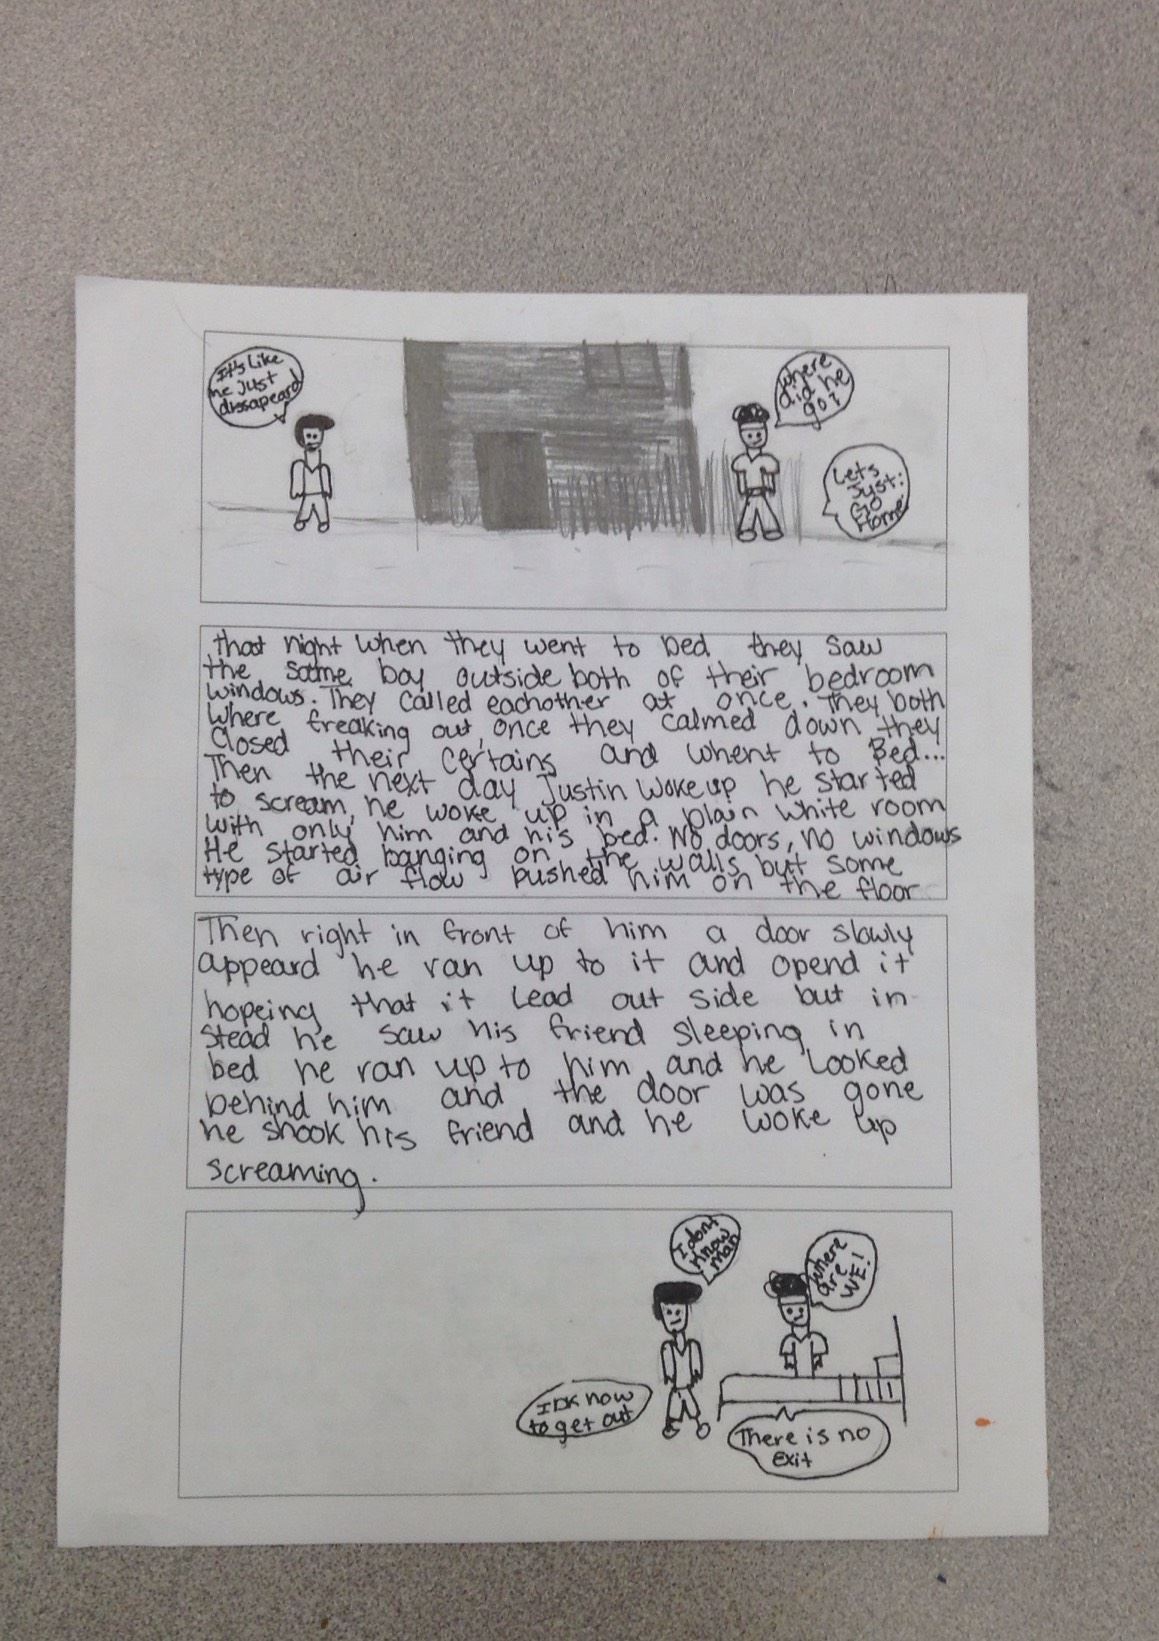 It's Like
he just
dissapeard
Where
did he
go?
Lets
Just:
Go
Home
that night when they went to bed they saw
the same boy outside both of their bedroom
windows. They called eachother at once. They both
where freaking out, once they calmed down they
closed their certains and whent to Bed...
Then the next day Justin woke up he started
to scream, he woke up in a plain white room
with only him and his bed. No doors, no windows
He started banging on the walls but some
type of air flow pushed him on the floor
Then right in front of him a door slowly
appeard he ran up to it and opend it
hopeing that it lead out side but in
stead he saw his friend sleeping in
bed he ran up to him, and he looked
behind him and the door was gone
he shook his friend and he woke up
screaming.
I dont
know
man
where
are
WE!
IDK how
to get out
There is no
Exit